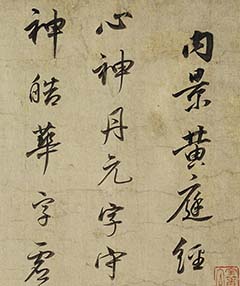 内景黄庭經
心神丹元字守
神皓華字虛